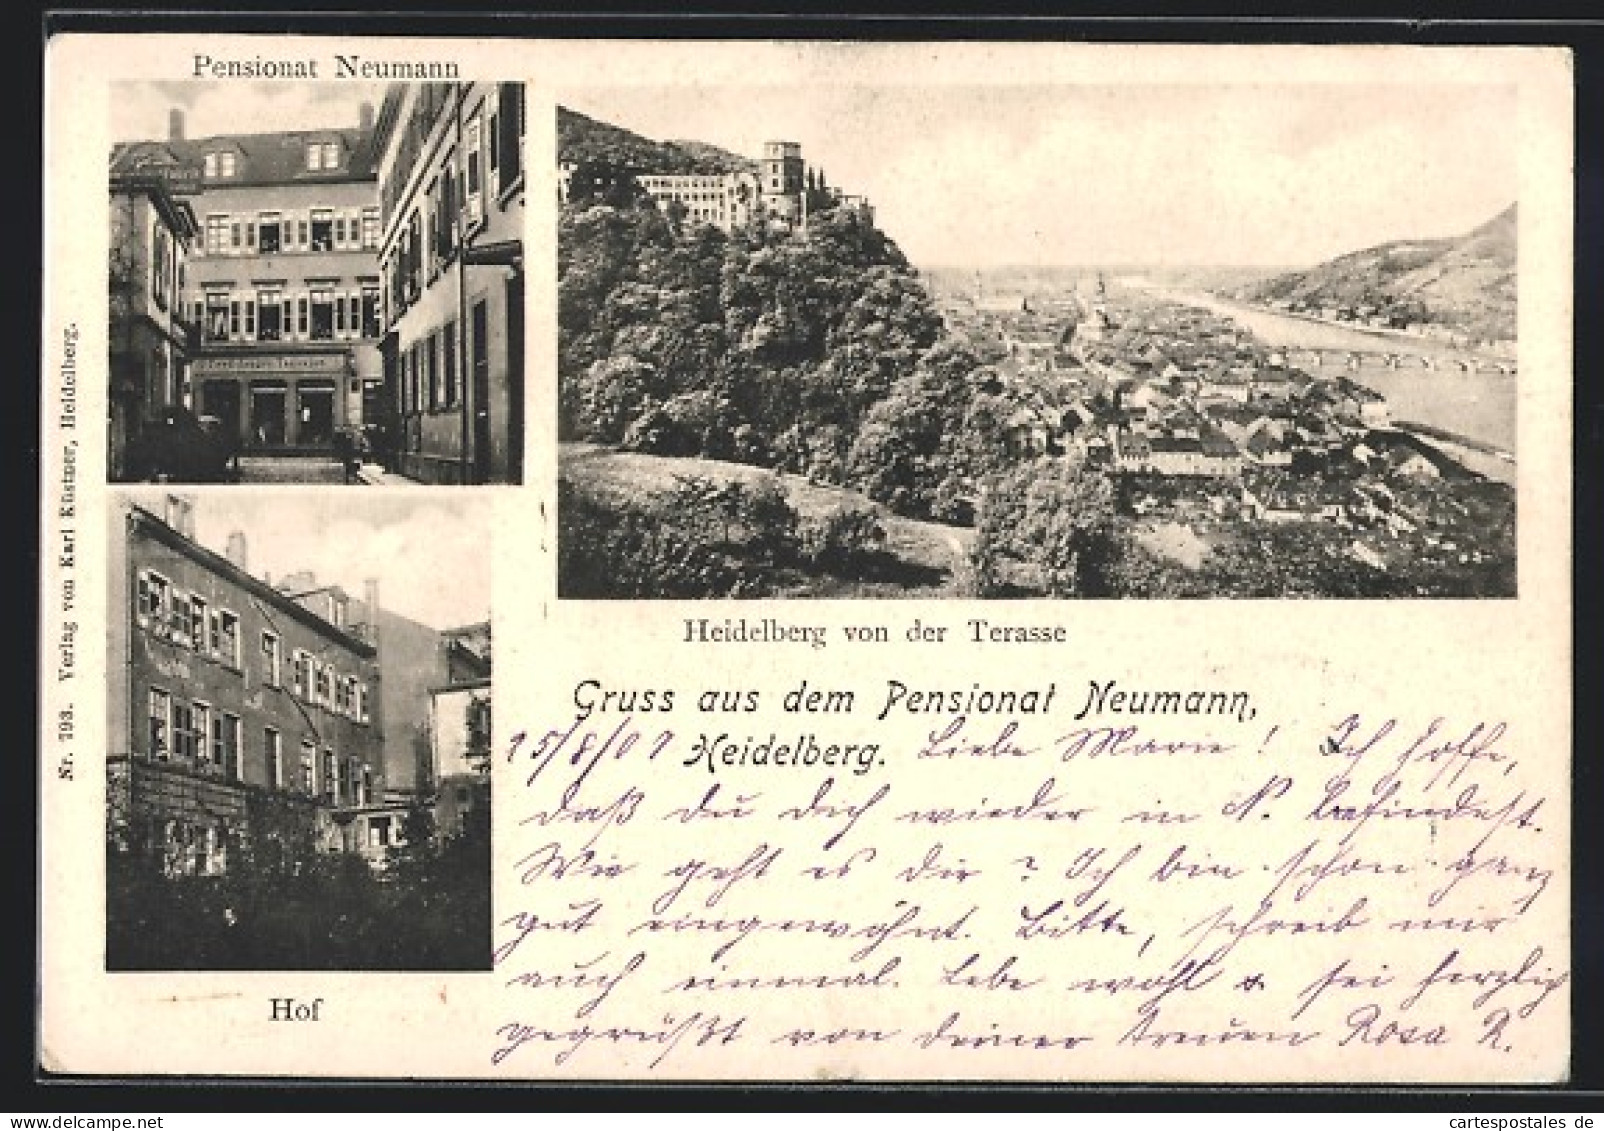 Pensionat Neumann
Nr. 193. Verlag von Karl Küstner, Heidelberg.
Hof
Heidelberg von der Terasse
Gruss aus dem Pensionat Neumann,
Heidelberg.
15/8/01 Liebe Marie! Ich hoffe,
daß du dich wieder in N. befindest.
Wie geht es dir? Ich bin schon ganz
gut eingewöhnt. Bitte, schreib mir
auch einmal. Lebe wohl & sei herzlich
gegrüßt von deiner treuen Rosa R.
cartespostales de